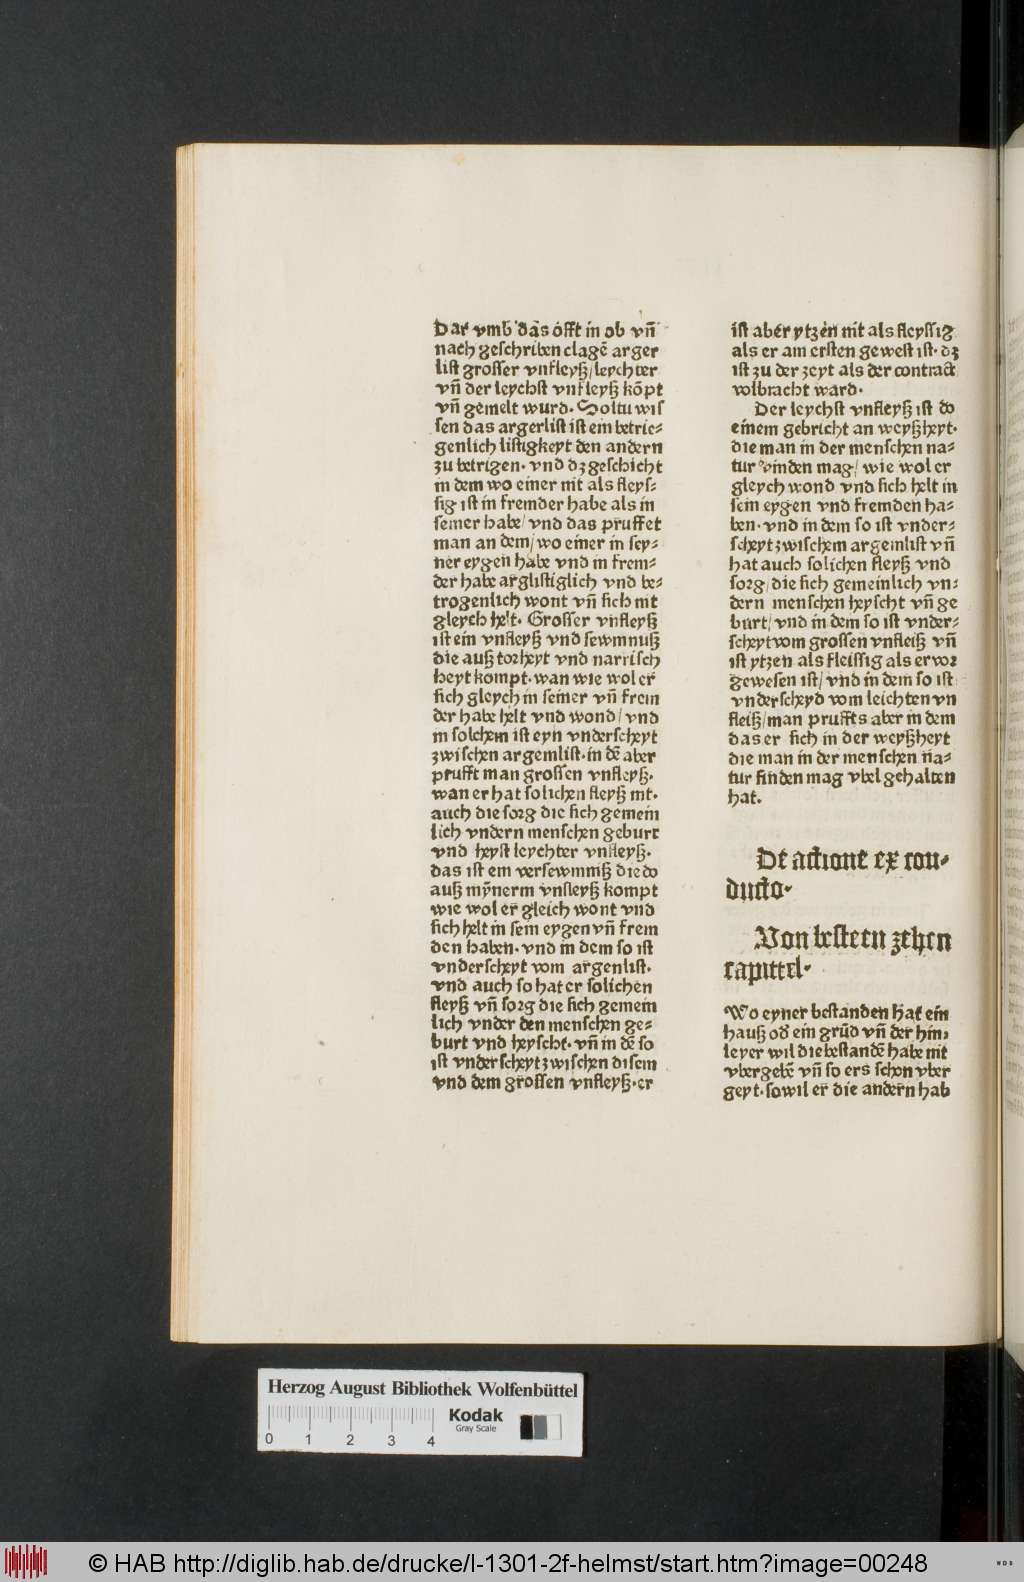 Dar vmb das offt in ob vñ
nach geschriben clagē arger
list grosser vnfleyß/leychter
vñ der leychst vnfleyß kōpt
vñ gemelt wurd. Soltu wis
sen das argerlist ist ein betrie-
genlich listigkeyt den andern
zu betrigen. vnd dz geschicht
in dem wo einer nit als fleys-
sig ist in fremder habe als in
seiner habe/ vnd das pruffet
man an dem/ wo einer in sey-
ner eygen habe vnd in frem-
der habe arglistiglich vnd be-
trogenlich wont vñ sich nit
gleych helt. Grosser vnfleyß
ist ein vnfleyß vnd sewmnuß
die auß torheyt vnd narrisch
heyt kompt. wan wie wol er
sich gleych in seiner vñ frem
der habe helt vnd wond/ vnd
in solchem ist eyn vnderscheyt
zwischen argemlist. in dē aber
prufft man grossen vnfleyß.
wan er hat solichen fleyß nit.
auch die sorg die sich gemein
lich vndern menschen geburt
vnd heyst leychter vnfleyß.
das ist ein versewmniß die do
auß mỹnerm vnfleyß kompt
wie wol er gleich wont vnd
sich helt in sein eygen vñ frem
den haben. vnd in dem so ist
vnderscheyt vom argenlist.
vnd auch so hat er solichen
fleyß vñ sorg die sich gemein
lich vnder den menschen ge-
burt vnd heyscht. vñ in dē so
ist vnderscheyt zwischen disem
vnd dem grossen vnfleyß. er
ist aber ytzen nit als fleyssig
als er am ersten gewest ist. dz
ist zu der zeyt als der contract
volbracht ward.
Der leychst vnfleyß ist do
einem gebricht an weyßheyt.
die man in der menschen na-
tur vinden mag/ wie wol er
gleych wond vnd sich helt in
sein eygen vnd fremden ha-
ben. vnd in dem so ist vnder-
scheyt zwischem argemlist vñ
hat auch solichen fleyß vnd
sorg/ die sich gemeinlich vn-
dern menschen heyscht vñ ge
burt/ vnd in dem so ist vnder-
scheyt vom grossen vnfleiß vñ
ist ytzen als fleissig als er vor
gewesen ist/ vnd in dem so ist
vnderscheyd vom leichten vn
fleiß/ man pruffts aber in dem
das er sich in der weyßheyt
die man in der menschen na-
tur finden mag vbel gehalten
hat.
De actione ex con-
ducto.
Von besteen zehen
capittel.
Wo eyner bestanden hat ein
hauß od̄ ein grūd vñ der hin-
leyer wil die bestandē habe nit
vbergebē vñ so ers schon vber
geyt. so wil er die andern hab
Herzog August Bibliothek Wolfenbüttel
Kodak
Gray Scale
0 1 2 3 4
© HAB http://diglib.hab.de/drucke/l-1301-2f-helmst/start.htm?image=00248